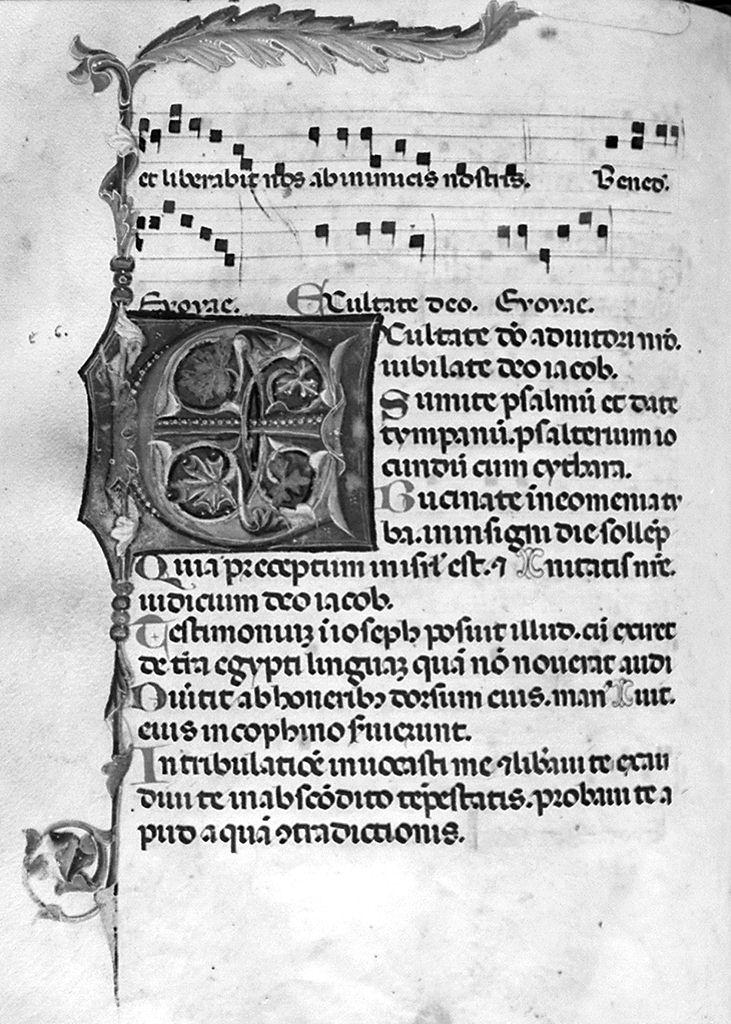 et liberabit nos ab inimicis nostris. Bened̄.
Evovae. ECultate deo. Evovae.
ECultate dō adiutori nrō.
iubilate deo iacob.
Sumite psalmū et date
tympanū. psalterium io
cundū cum cythara.
Bucinate in eomenia tu
ba. in insigni die sollēp
Quia preceptum in isrl̄ est. ⁊ nitatis nr̄e.
iudicium deo iacob.
Testimoniuꝫ ī ioseph posuit illud. cū exiret
de tr̄ra egypti linguaꝫ quā nō noverat audi
Divtit ab honeribꝫ dorsum eius. man⁹ iuit.
eius in cophino s̄uierunt.
In tribulatiōe invocasti me ⁊ lib̄avi te exau
divi te in abscōdito tēpestatis. probavi te a
pud aquā ꝯtradictionis.